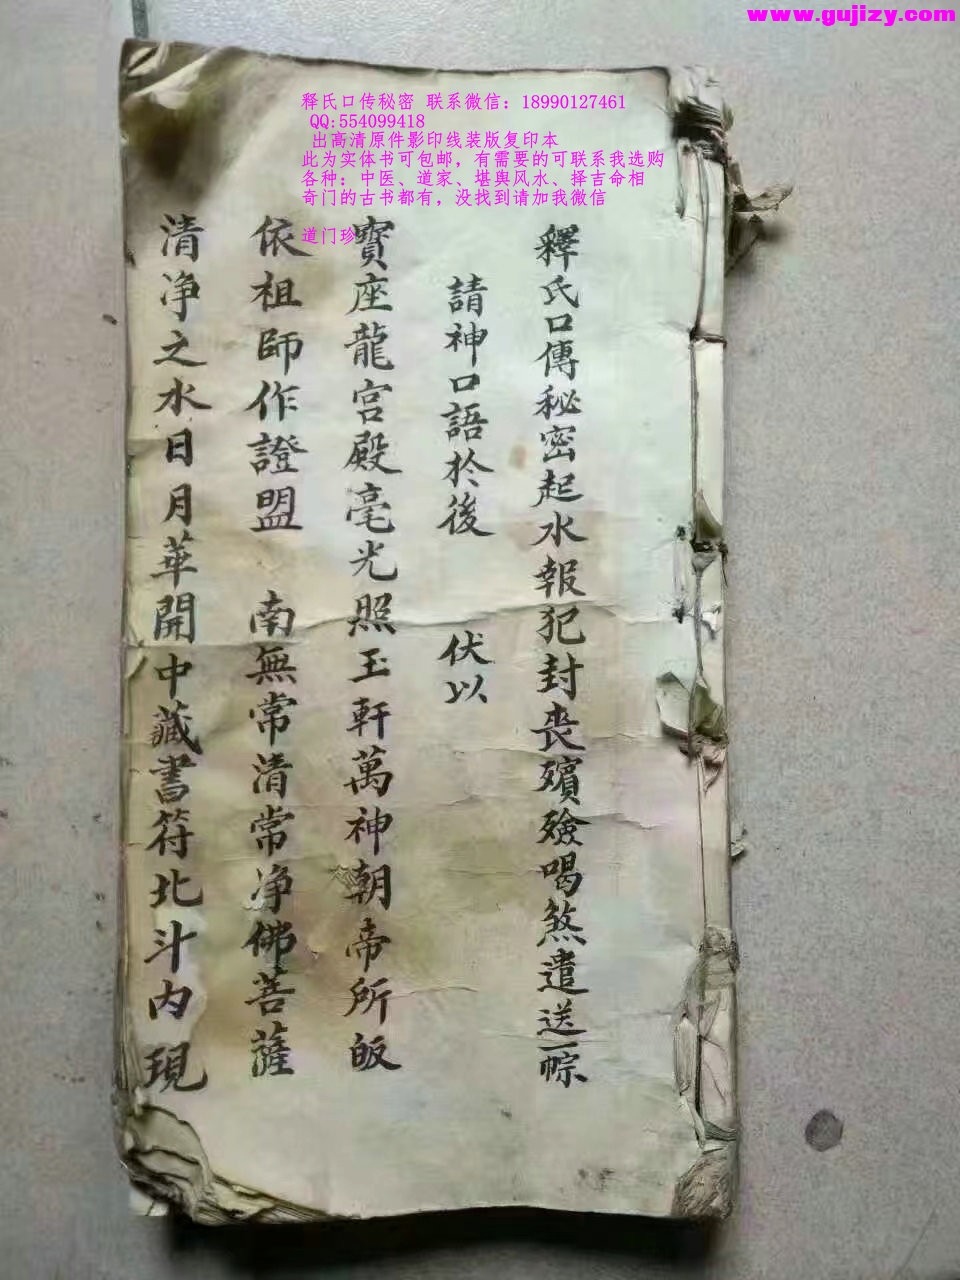 www.gujizy.com
释氏口传秘密 联系微信：18990127461
QQ:554099418
出高清原件影印线装版复印本
此为实体书可包邮，有需要的可联系我选购
各种：中医、道家、堪舆风水、择吉命相
奇门的古书都有，没找到请加我微信
道门珍
釋氏口傳秘密起水報犯封喪殯殮喝煞遣送一宗
請神口語於後 伏以
寶座龍宮殿毫光照玉軒萬神朝帝所皈
依祖師作證盟 南無常清常净佛菩薩
清净之水日月華開中藏書符北斗内現